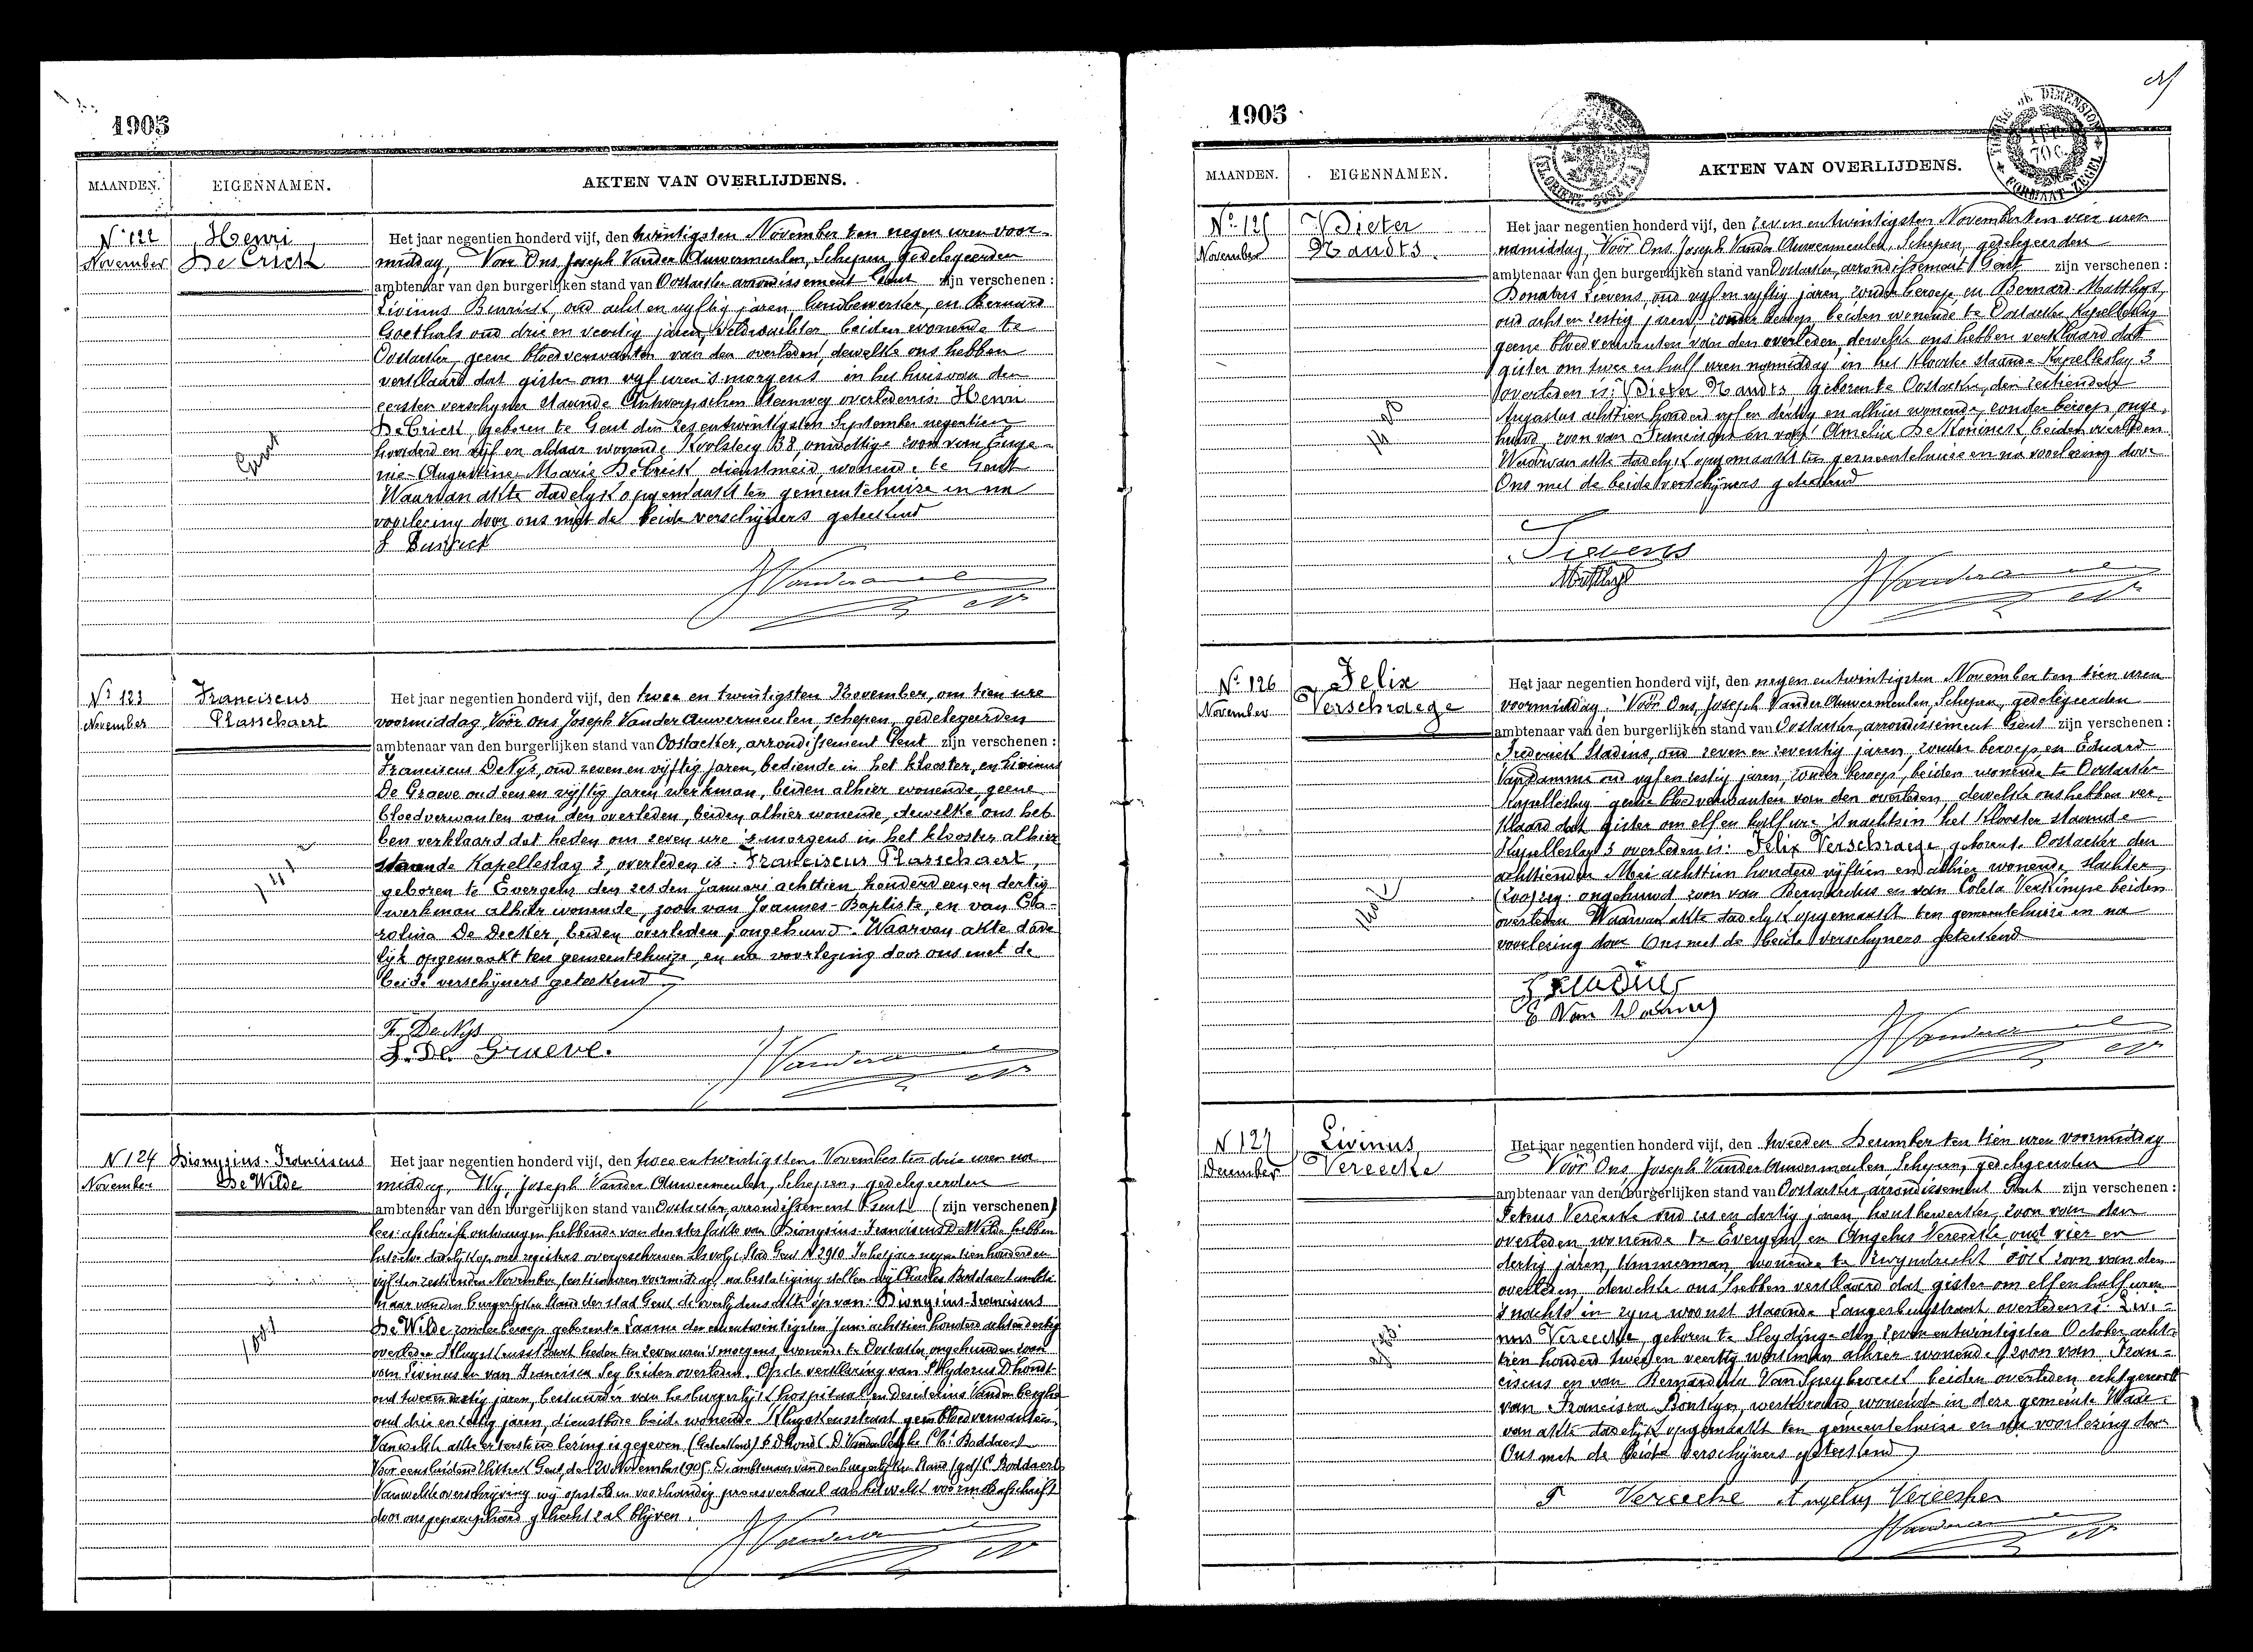 1905
MAANDEN.
EIGENNAMEN.
AKTEN VAN OVERLIJDENS.
N° 122
November
Henri
De Crick
Gent
Het jaar negentien honderd vijf, den twintigsten November ten negen uren voor-
middag, Voor Ons Joseph Vander Auwermeulen, Schepen, gedelegeerden
ambtenaar van den burgerlijken stand van Oostacker arrondissement Gent zijn verschenen :
Livinus oud acht en vyftig jaren, landbewerker, en Bernard
Goethals oud drie en veertig jaren, veldwachter, beiden wonende te
Oostacker, geene bloedverwanten van den overleden, dewelke ons hebben
verklaard dat gister om vyf uren 's morgens in het huis van den
eersten verschyner staande Antwerpschen steenweg overleden is: Henri
De Crick, geboren te Gent den zes entwintigsten September negentien
honderd en vijf en aldaar wonende Koolsteeg 38, onwettige zoon van Euge-
nie-Augustine-Marie De Crick dienstmeid, wonende te Gent
Waarvan akte dadelyk opgemaakt ten gemeentehuize en na
voorlezing door ons met de beide verschijners geteekend
N° 123
November
Franciscus
Plasschaert
Het jaar negentien honderd vijf, den twee en twintigsten November, om tien ure
voormiddag Vóór ons Joseph Vander Auwermeulen, schepen, gedelegeerden
ambtenaar van den burgerlijken stand van Oostacker, arrondissement Gent zijn verschenen :
Franciscus De Nys, oud zeven en vijftig jaren, bediende in het klooster, en Livinus
De Graeve oud een en vijftig jaren werkman, beiden alhier wonende, geene
bloedverwanten van den overleden, beiden alhier wonende, dewelke ons heb
ben verklaard dat heden om zeven ure 's morgens in het klooster alhier
staande Kapelleslag 3, overleden is: Franciscus Plasschaert,
geboren te Evergem den zesden Januari achttien honderd een en dertig
werkman alhier wonende, zoon van Joannes-Baptiste, en van Ca-
rolina De Decker, beiden overleden, ongehuwd. Waarvan akte dade
lijk opgemaakt ten gemeentehuize, en na voorlezing door ons met de
beide verschijners geteekend
F. De Nys
L. De Graeve.
N 124
November
Dionysius-Franciscus
De Wilde
Het jaar negentien honderd vijf, den twee entwintigsten November ten drie uren na
middag, Wy, Joseph Vander Auwermeulen, Schepen, gedelegeerden
ambtenaar van den burgerlijken stand van Oostacker, arrondissement Gent (zijn verschenen)
lees: afschrift ontvangen hebbende van den sterfakte van Dionysius-Franciscus De Wilde hebben
dadelijk op onze registers overgeschreven als volgt: Stad Gent N 2910 In het jaar negentien honderd en
vijf den zestienden November, ten tien uren voormiddag, na bestatiging stellen wij Charles Boddaert ambte
naar van den burgerlijken stand der stad Gent, de overlijdens akte op van: Dionysius-Franciscus
De Wilde zonder beroep geboren te Laarne den eenentwintigsten Juni achttien honderd achtendertig
overleden heden ten zeven uren 's morgens, wonende te Oostacker ongehuwd en zoon
van Livinus en van Francisca Sey beiden overleden. Op de verklaring van Isidorus Dhondt
oud jaren, bestuurder van het burgerlijk hospitaal en Desiderius Vanden Berghe
oud drie en zestig jaren, dienstbode beide wonende geen bloedverwanten
Van welke akte er lezing is gegeven (Geteekend) Dhondt D. Vanden Berghe Ch. Boddaert
Voor eensluidend uittrek Gent, den 20 November 1905. De ambtenaar van den burgerlijken Stand (get) C. Boddaert
Van welke overschrijving wij opstellen voorhandig procesverbaal aan hetwelk voormeld afschrift
door ons geparapheerd gehecht zal blijven.
1905
MAANDEN.
EIGENNAMEN.
AKTEN VAN OVERLIJDENS.
N° 125
November
Pieter
Naudts.
Het jaar negentien honderd vijf, den zeven entwintigsten November ten vier uren
namiddag, Vóór Ons Joseph Vander Auwermeulen, Schepen, gedelegeerden
ambtenaar van den burgerlijken stand van Oostacker, arrondissement Gent zijn verschenen :
Donatus Lievens, oud vyf en vyftig jaren, zonder beroep en Bernard Matthys,
oud acht en zestig jaren, zonder beroep, beiden wonende te Oostacker Kapelleslag
geene bloedverwanten van den overleden, dewelke ons hebben verklaard dat
gister om twee en half uren namiddag in het Klooster staande Kapelleslag 3
overleden is: Pieter Naudts, geboren te Oostacker, den zestienden
Augustus achttien honderd vyf en dertig en alhier wonende, zonder beroep, onge-
huwd, zoon van Franciscus en van Amelia De Koninck, beiden overleden
Waarvan akte dadelyk opgemaakt ten gemeentehuize en na voorlezing door
Ons met de beide verschijners geteekend
Lievens
Matthys
N° 126
November
Felix
Verschraege
Het jaar negentien honderd vijf, den negen entwintigsten November ten tien uren
voormiddag. Vóór Ons, Joseph Vander Auwermeulen, Schepen, gedelegeerden
ambtenaar van den burgerlijken stand van Oostacker, arrondissement Gent zijn verschenen :
Frederick Stadius, oud zeven en zeventig jaren, zonder beroep en Eduard
Vandamme oud vyf en zestig jaren, zonder beroep, beiden wonende te Oostacker
Kapelleslag geene bloedverwanten van den overleden, dewelke ons hebben ver-
klaard dat gister om elf en half ure 's nachts in het Klooster staande
Kapelleslag 3 overleden is: Felix Verschraege, geboren te Oostacker den
achttienden Mei achttien honderd vijftien en alhier wonende,
ongehuwd, zoon van Bernardus en van Coleta beiden
overleden. Waarvan akte dadelyk opgemaakt ten gemeentehuize en na
voorlezing door Ons met de beide verschyners geteekend
N 127
December
Livinus
Vereecke
Het jaar negentien honderd vijf, den tweeden December ten tien uren voormiddag
Vóór Ons Joseph Vander Auwermeulen Schepen, gedelegeerden
ambtenaar van den burgerlijken stand van Oostacker, arrondissement Gent zijn verschenen :
Petrus Vereecke oud zes en dertig jaren, houtbewerker, zoon van den
overleden wonende te Evergem, en Angelus Vereecke oud vier en
dertig jaren, timmerman, wonende te Zwyndrecht ook zoon van den
overleden, dewelke ons hebben verklaard dat gister om elf en half uren
's nachts in zyne woonst staande Langerbrugstraat overleden is: Livi-
nus Vereecke, geboren te Sleydinge den zeven entwintigsten October acht-
tien honderd twee en veertig werkman alhier wonende, zoon van Fran-
ciscus en van Bernardina Van Speybroeck beiden overleden echtgenoot
van Francisca Bonteyn, werkvrouw, wonende in deze gemeente Waar-
van akte dadelijk opgemaakt ten gemeentehuize en na voorlezing door
Ons met de beide verschijners geteekend
P Vereecke Angelus Vereecke